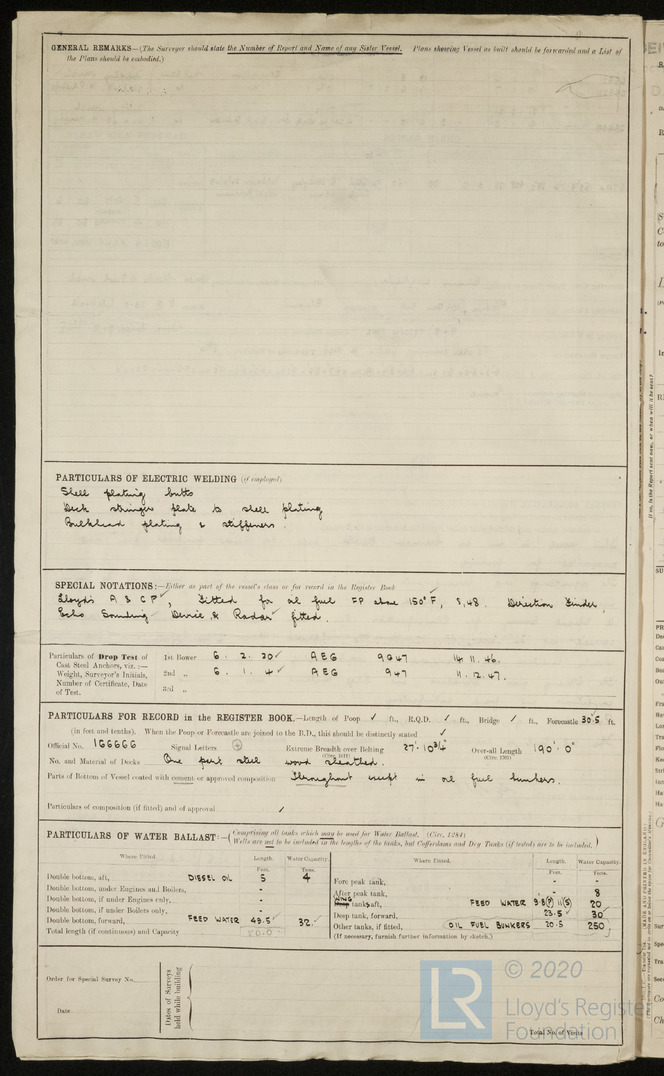 GENERAL REMARKS—(The Surveyor should state the Number of Report and Name of any Sister Vessel. Plans showing Vessel as built should be forwarded and a List of
the Plans should be embodied.)
PARTICULARS OF ELECTRIC WELDING (if employed)
Shell plating butts
Deck stringer plate to shell plating
Bulkhead plating & stiffeners.
SPECIAL NOTATIONS:—Either as part of the vessel's class or for record in the Register Book
Lloyd's A & C P, Fitted for oil fuel FP above 150°F, 5,48. Direction Finder,
Echo Sounding Device & Radar fitted.
Particulars of Drop Test of
Cast Steel Anchors, viz. :—
Weight, Surveyor's Initials,
Number of Certificate, Date
of Test.
1st Bower 6. 2. 20 AEG 9047 14.11.46.
2nd „ 6. 1. 4 AEG 947 11.12.47.
3rd „
PARTICULARS FOR RECORD in the REGISTER BOOK.—Length of Poop ✓ ft., R.Q.D. ✓ ft., Bridge ✓ ft., Forecastle 30.5 ft.
(in feet and tenths). When the Poop or Forecastle are joined to the B.D., this should be distinctly stated ✓
Official No. 166666 Signal Letters Extreme Breadth over Belting 27'-10¾" Over-all Length 190'-0"
(Circ. 1611) (Circ. 1703)
No. and Material of Decks One part steel wood sheathed.
Parts of Bottom of Vessel coated with cement or approved composition Throughout except in oil fuel bunkers.
Particulars of composition (if fitted) and of approval ✓
PARTICULARS OF WATER BALLAST:—(Comprising all tanks which may be used for Water Ballast. (Circ. 1284)
Wells are not to be included in the lengths of the tanks, but Cofferdams and Dry Tanks (if tested) are to be included.)
Where Fitted. Length. Water Capacity.
Feet. Tons.
Double bottom, aft, DIESEL OIL 5 4
Double bottom, under Engines and Boilers, -
Double bottom, if under Engines only, -
Double bottom, if under Boilers only, -
Double bottom, forward, FEED WATER 49.5 32
Total length (if continuous) and Capacity
Where Fitted. Length. Water Capacity.
Feet. Tons.
Fore peak tank, - -
After peak tank, - 8
WING tanks aft, FEED WATER 9.8(P) 11(S) 20
Deep tank, forward, 23.5 30
Other tanks, if fitted, OIL FUEL BUNKERS 20.5 250
(If necessary, furnish further information by sketch.)
Order for Special Survey No.
Date
Dates of Surveys
held while building
Total No. of Visits
LR
© 2020
Lloyd's Register
Foundation